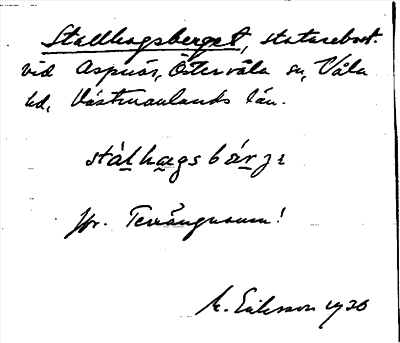 Stallhagsberget, statarebost.
vid Aspnäs, Östervåla sn, Våla
hd, Västmanlands län.
stálhagsbárjı
Jfr. Terrängnamn!
M. Eriksson 1930